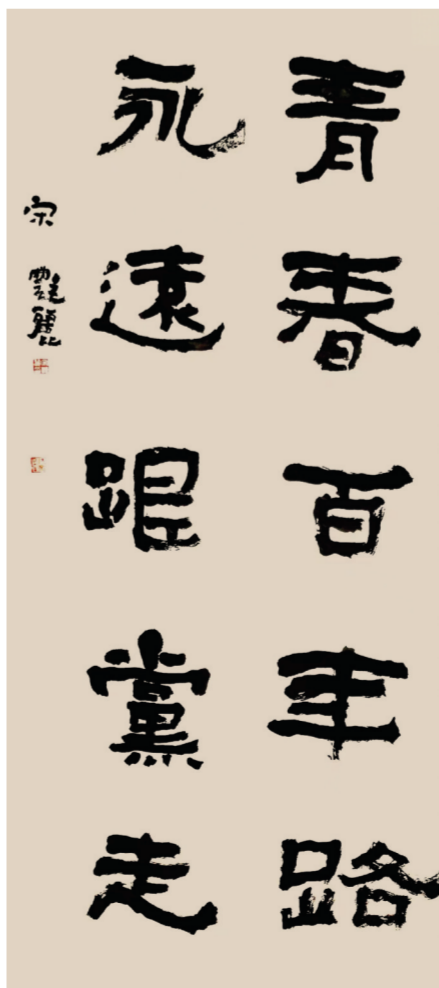 青春百年路
永遠跟黨走
宋艷麗